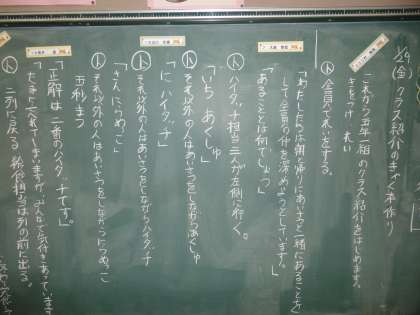 1/29(金) クラス紹介のきゃく本作り
これから五年一組のクラス紹介をはじめます。
きをつけ、れい
ト 全員でれいをする。
「わたしたちは朝と帰りにあいさつと一緒にあることを
して全員の仲を深めようとしています。」
「あることは何でしょう」
ト ハイタッチ担当二人が左側に行く。
「いち あくしゅ」
ト それ以外の人はあいさつをしながらあくしゅ
「に ハイタッチ」
ト それ以外の人はあいさつをしながらハイタッチ
「さん にらめっこ」
ト それ以外の人はあいさつをしながらにらめっこ
五秒まつ
「正解は二番のハイタッチです。」
ト 二列に戻る 給食担当は列の前に出る。